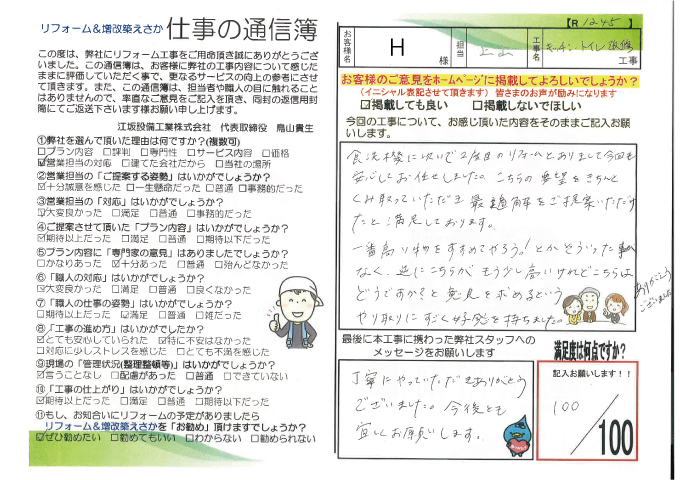 リフォーム＆増改築えさか 仕事の通信簿
この度は、弊社にリフォーム工事をご用命頂き誠にありがとうござ
いました。この通信簿は、お客様に弊社の工事内容について感じた
ままに評価していただく事で、更なるサービスの向上の参考にさせ
て頂きます。また、この通信簿は、担当者や職人の目に触れること
はありませんので、率直なご意見をご記入を頂き、同封の返信用封
筒にてご返送下さいます様お願い申し上げます。
江坂設備工業株式会社 代表取締役 鳥山貴生
①弊社を選んで頂いた理由は何ですか？(複数可)
□プラン内容 □評判 □専門性 □サービス内容 □価格
☑営業担当の対応 □建てた会社だから □当社の場所
②営業担当の「ご提案する姿勢」はいかがでしょうか？
☑十分誠意を感じた □一生懸命だった □普通 □事務的だった
③営業担当の「対応」はいかがでしょうか？
☑大変良かった □満足 □普通 □事務的だった
④ご提案させて頂いた「プラン内容」はいかがでしょうか？
☑期待以上だった □満足 □普通 □期待以下だった
⑤プラン内容に「専門家の意見」はありましたでしょうか？
□かなりあった ☑十分あった □普通 □殆んどなかった
⑥「職人の対応」はいかがでしょうか？
☑大変良かった □満足 □普通 □良くなかった
⑦「職人の仕事の姿勢」はいかがでしょうか？
□期待以上だった ☑満足 □普通 □雑だった
⑧「工事の進め方」はいかがでしたか？
☑とても安心していられた ☑特に不安はなかった
□対応に少しストレスを感じた □とても不満を感じた
⑨現場の「管理状況(整理整頓等)」はいかがでしょうか？
☑言うことなし □配慮があった □普通 □できていない
⑩「工事の仕上がり」はいかがでしょうか？
☑期待以上だった □満足 □普通 □期待以下だった
⑪もし、お知合いにリフォームの予定がありましたら
リフォーム＆増改築えさかを「お勧め」頂けますでしょうか？
☑ぜひ勧めたい □勧めてもいい □わからない □勧められない
【R 1245】
お客様名 H 様 担当 工事名 キッチン・トイレ改修 工事
お客様のご意見をホームページに掲載してよろしいでしょうか？
(イニシャル表記させて頂きます) 皆さまのお声が励みになります
☑掲載しても良い □掲載しないでほしい
今回の工事について、お感じ頂いた内容をそのままご記入お願
いします。
食洗機に次いで2度目のリフォームとありまして今回も
安心してお任せしました。こちらの要望をきちんと
くみ取っていただき 最適解をご提案いただけ
たと満足しております。
一番高い物をすすめてやろう！とかそういった事が
なく、逆にこちらが もう少し高いけれどこちらは
どうですか？と意見を求めるという
やり取りにすごく好感を持ちました。
ありがとう
ございました
最後に本工事に携わった弊社スタッフへの
メッセージをお願いします
丁寧にやっていただきありがとう
ございました。今後とも
宜しくお願いします。
満足度は何点ですか？
記入お願いします！！
100
/100